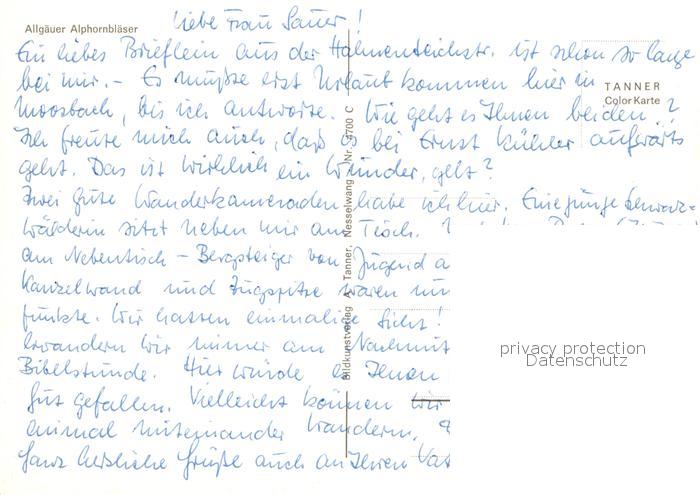 Allgäuer Alphornbläser
Liebe Frau Sauer!
Ein liebes Brieflein aus der Halmenteichstr. ist schon so lange
bei mir. – Es mußte erst Urlaub kommen hier in
Moosbach, bis ich antworte. Wie geht es Ihnen beiden?
Ich freute mich auch, daß es bei Ernst Kühler aufwärts
geht. Das ist wirklich ein Wunder, gelt?
Zwei gute Wanderkameraden habe ich hier. Eine junge Schwarz=
wälderin sitzt neben mir am Tisch.
am Nebentisch – Bergsteiger von Jugend a
Kanzelwand und Zugspitze waren un
punkte. Wir hatten einmalige Sicht!
wandern wir immer am Nachmit
Bibelstunde. Hier würde es Ihnen
gut gefallen. Vielleicht können wir
einmal miteinander wandern.
Ganz herzliche Grüße auch an Ihren Vat
TANNER
Color Karte
Bildkunstverlag A. Tanner, Nesselwang Nr. 9700 C
privacy protection
Datenschutz